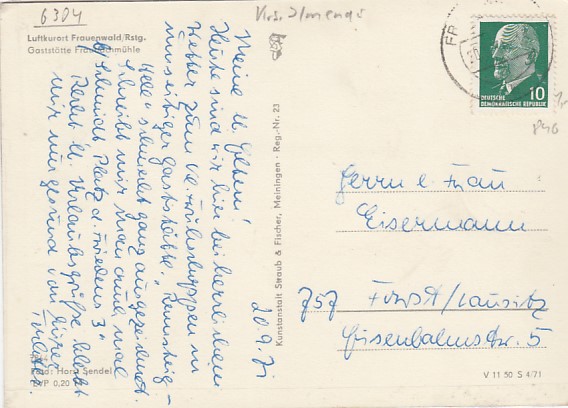 6304
Krs. Ilmenau
Luftkurort Frauenwald/Rstg.
Gaststätte Fraubachmühle
Meine lb. Eltern!
Heute sind wir hier bei herrlichem
Wetter zum Frühschoppen in
umseitiger Gaststätte. "Rennsteig-
Hell" schmeckt ganz ausgezeichnet.
Schreibt mir man mal
Schmidt, Platz d. Friedens 3
Urlaubsgrüße
wir nur gesund
20.9.71
Foto: Horst Sendel
EVP 0,20
Kunstanstalt Straub & Fischer, Meiningen - Reg.-Nr. 23
10
DEUTSCHE
DEMOKRATISCHE REPUBLIK
846
Herrn u. Frau
Eisermann
757 Forst/Lausitz
Eisenbahnstr. 5
V 11 50 S 4/71